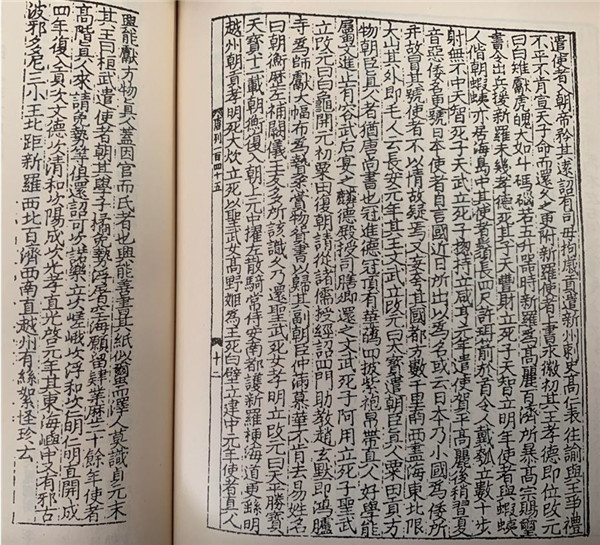 遣使者入朝帝矜其遠詔有司毋拘歲貢遣新州刺史高仁表往諭與王爭禮
不平不肯宣天子命而還久之更附新羅使者上書永徽初其王孝德即位改元
曰白雉獻虎魄大如斗碼碯若五升器時新羅爲高麗百濟所暴高宗賜璽
書令出兵援新羅未幾孝德死其子天豐財立死子天智立明年使者與蝦蛦
人偕朝蝦蛦亦居海島中其使者鬚長四尺許珥箭於首令人戴瓠立數十步
射無不中天智死子天武立死子揔持立咸亨元年遣使賀平高麗後稍習夏
音惡倭名更號日本使者自言國近日所出以爲名或云日本乃小國爲倭所
并故冒其號使者不以情故疑焉又妄夸其國都方數千里南西盡海東北限
大山其外即毛人云長安元年其王文武立改元曰太寶遣朝臣真人粟田貢方
物朝臣真人者猶唐尚書也冠進德冠頂有華蘤四披紫袍帛帶真人好學能
屬文進止有容武后宴之麟德殿授司膳卿還之文武死子阿用立死子聖武
立改元曰白龜開元初粟田復朝請從諸儒授經詔四門助教趙玄默即鴻臚
寺爲師獻大幅布爲贄悉賞物貿書以歸其副朝臣仲滿慕華不肯去易姓名
曰朝衡歷左補闕儀王友多所該識久乃還聖武死女孝明立改元曰天平勝寶
天寶十二載朝衡復入朝上元中擢左散騎常侍安南都護新羅梗海道更繇明
越州朝貢孝明死大炊立死以聖武女高野姬爲王死白壁立建中元年使者真人
唐列一百四十五
十二
興能獻方物真人蓋因官而氏者也興能善書其紙似繭而澤人莫識貞元末
其王曰桓武遣使者朝其學子橘免勢浮屠空海願留肄業歷二十餘年使者
高階真人來請免勢等俱還詔可次諾樂立次嵯峨次浮和次仁明仁明直開成
四年復入貢次文德次清和次陽成次光孝直光啓元年其東海嶼中又有邪古
波邪多尼三小王北距新羅西北百濟西南直越州有絲絮怪珍云